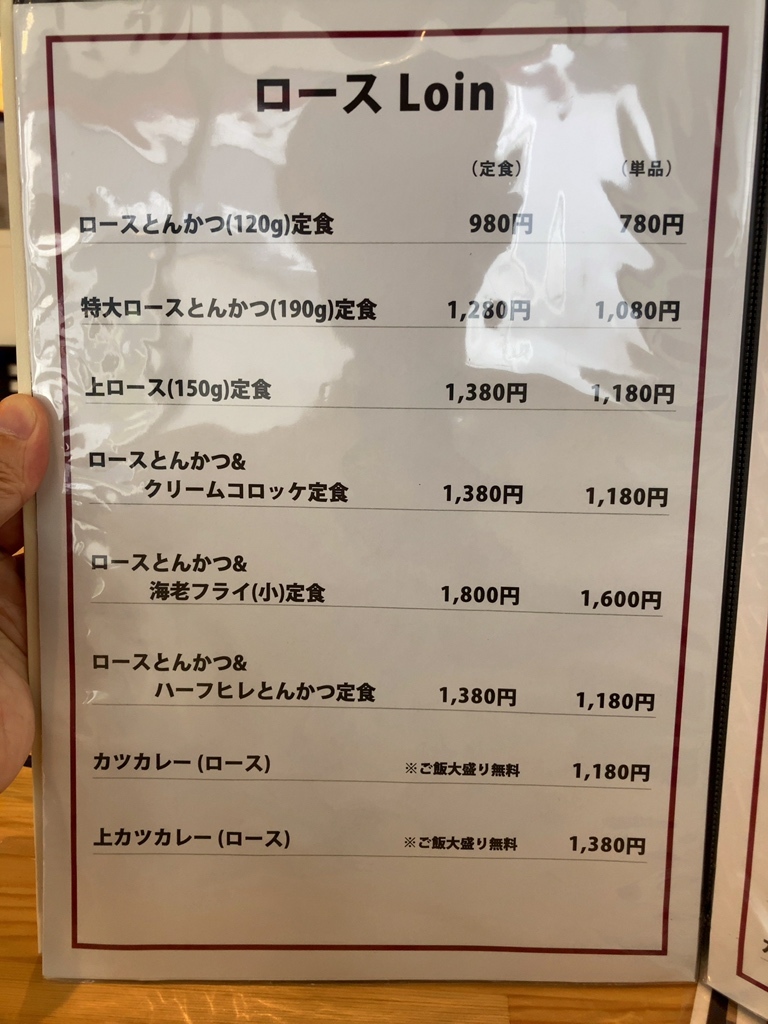 ロース Loin
(定食) (単品)
ロースとんかつ(120g)定食 980円 780円
特大ロースとんかつ(190g)定食 1,280円 1,080円
上ロース(150g)定食 1,380円 1,180円
ロースとんかつ&
クリームコロッケ定食 1,380円 1,180円
ロースとんかつ&
海老フライ(小)定食 1,800円 1,600円
ロースとんかつ&
ハーフヒレとんかつ定食 1,380円 1,180円
カツカレー (ロース) ※ご飯大盛り無料 1,180円
上カツカレー (ロース) ※ご飯大盛り無料 1,380円